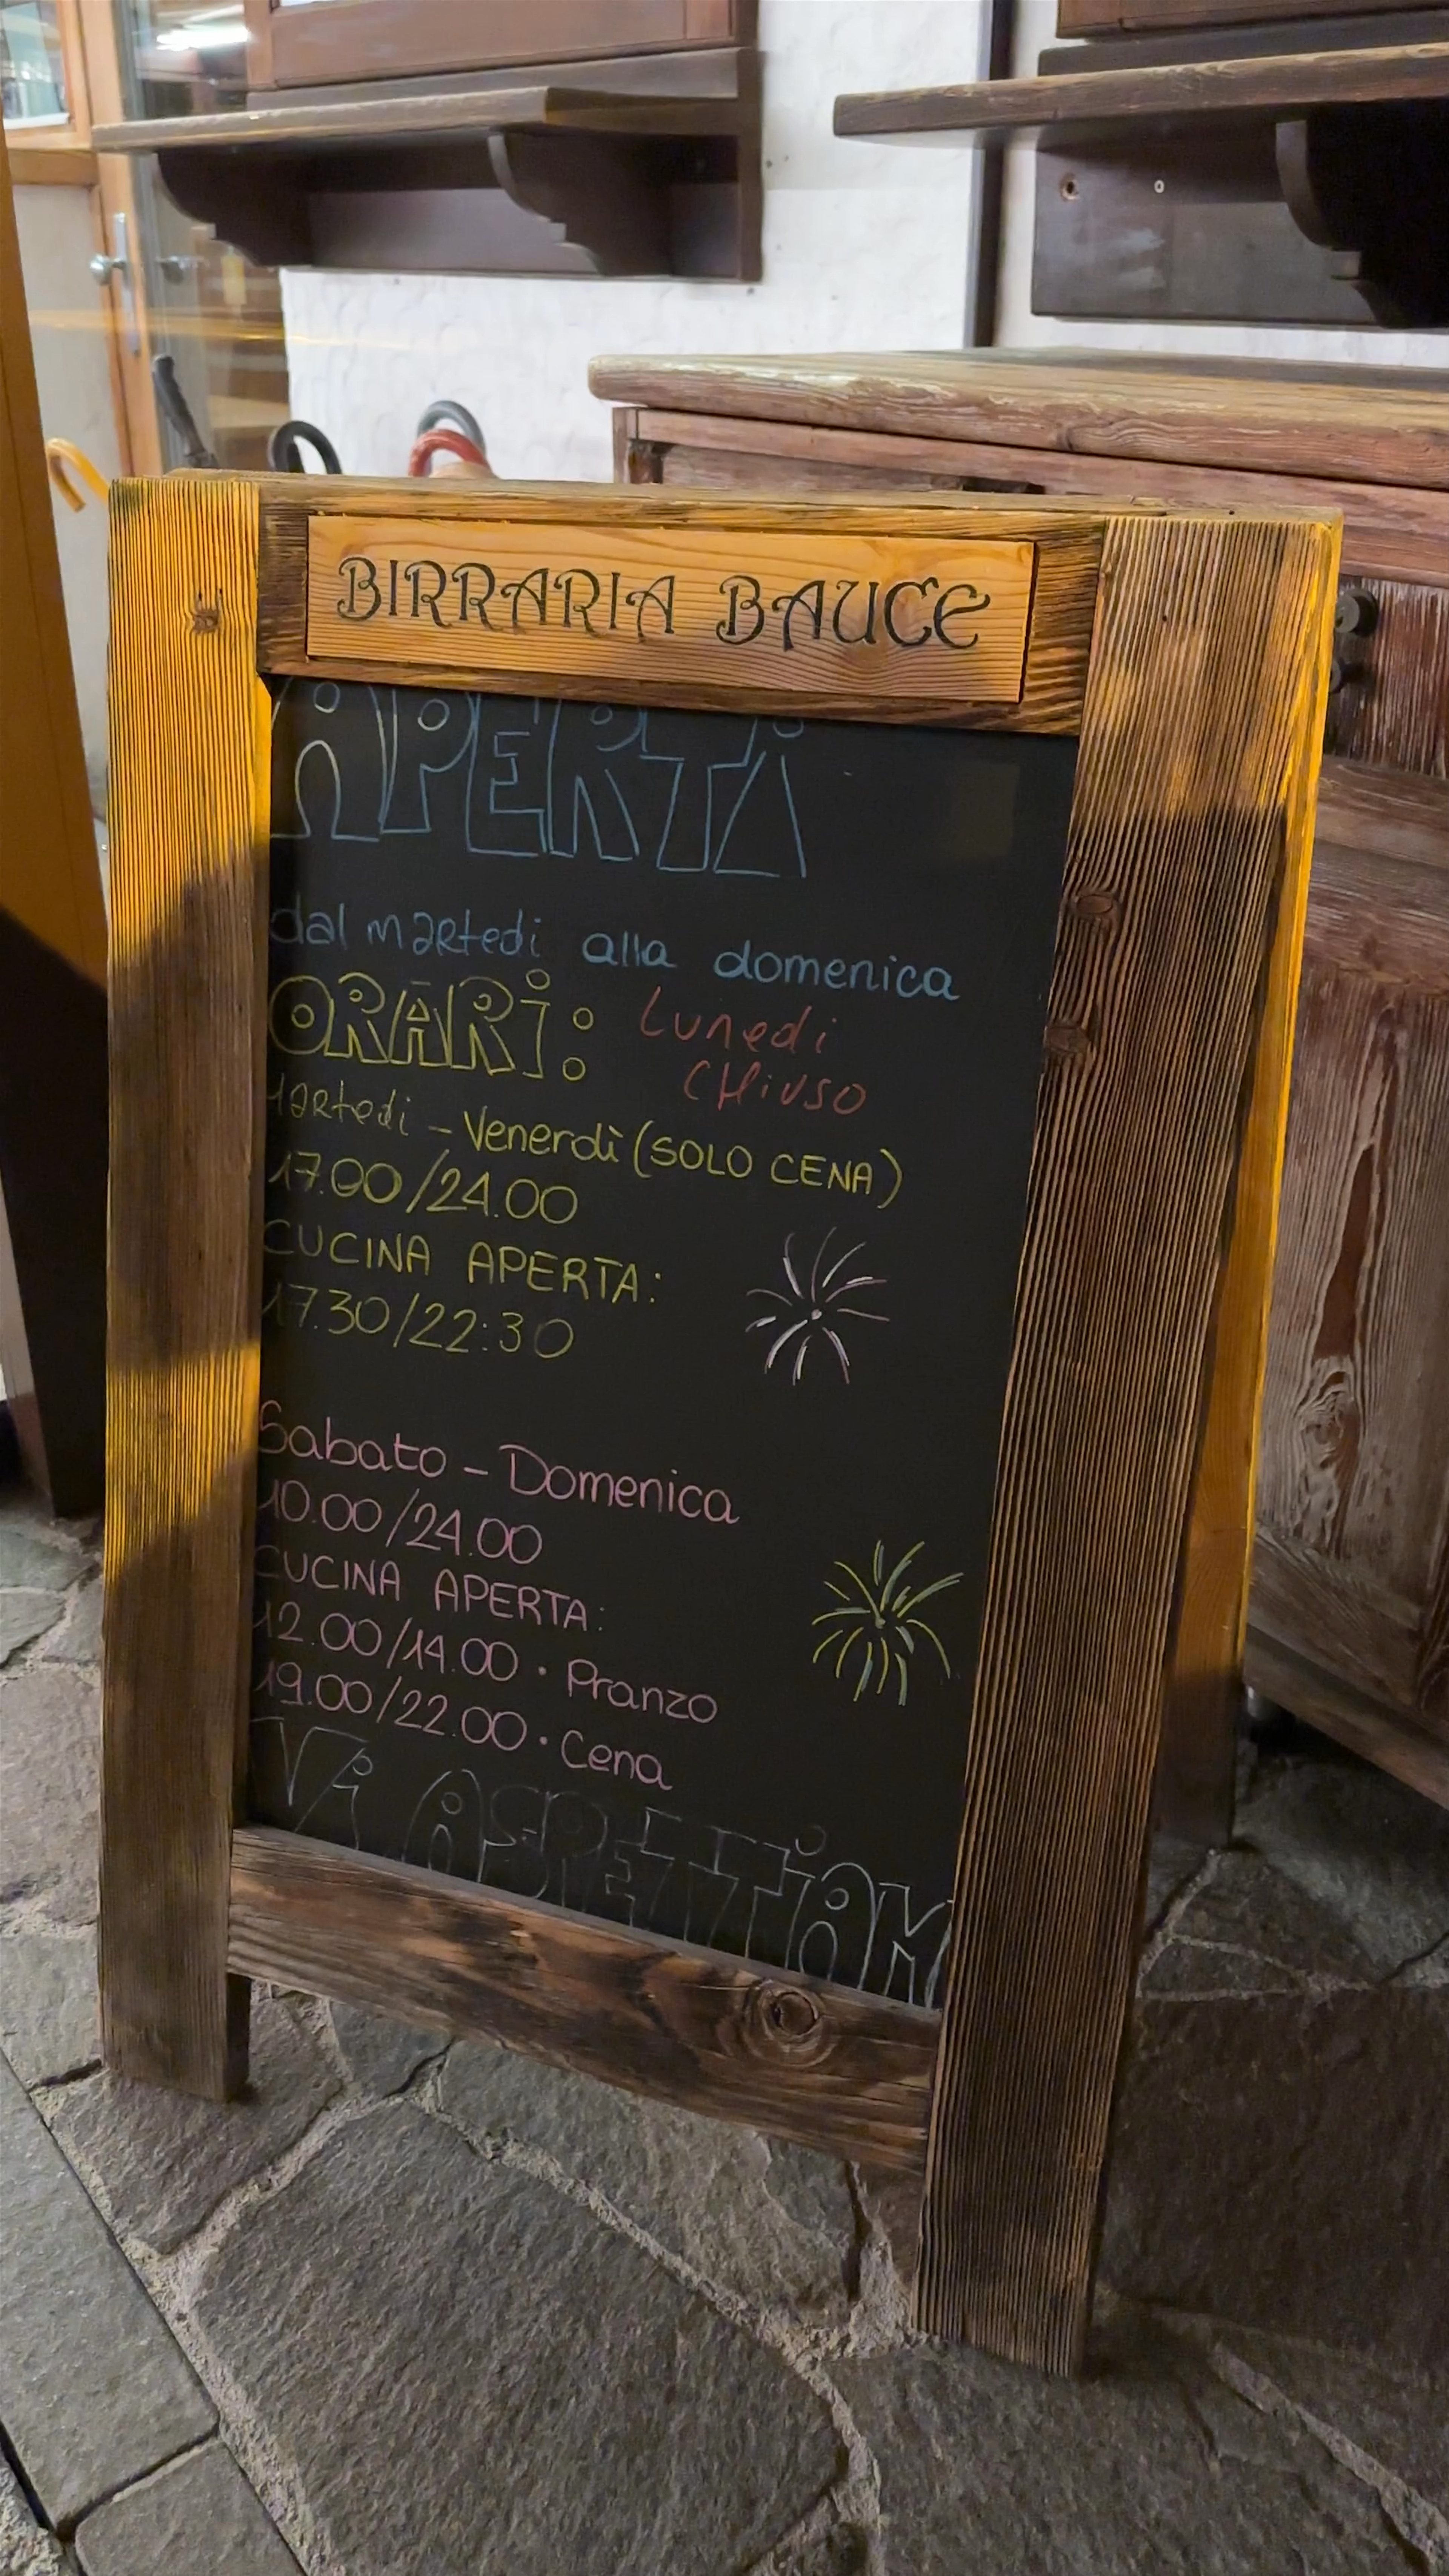 BIRRARIA BAUCE
APERTi
dal martedi alla domenica
ORARi:
Lunedi
CHiuso
Martedi - Venerdì (SOLO CENA)
17.00/24.00
CUCINA APERTA:
17.30/22:30
Sabato - Domenica
10.00/24.00
CUCINA APERTA:
12.00/14.00 • Pranzo
19.00/22.00 • Cena
Vi ASPETTiAM